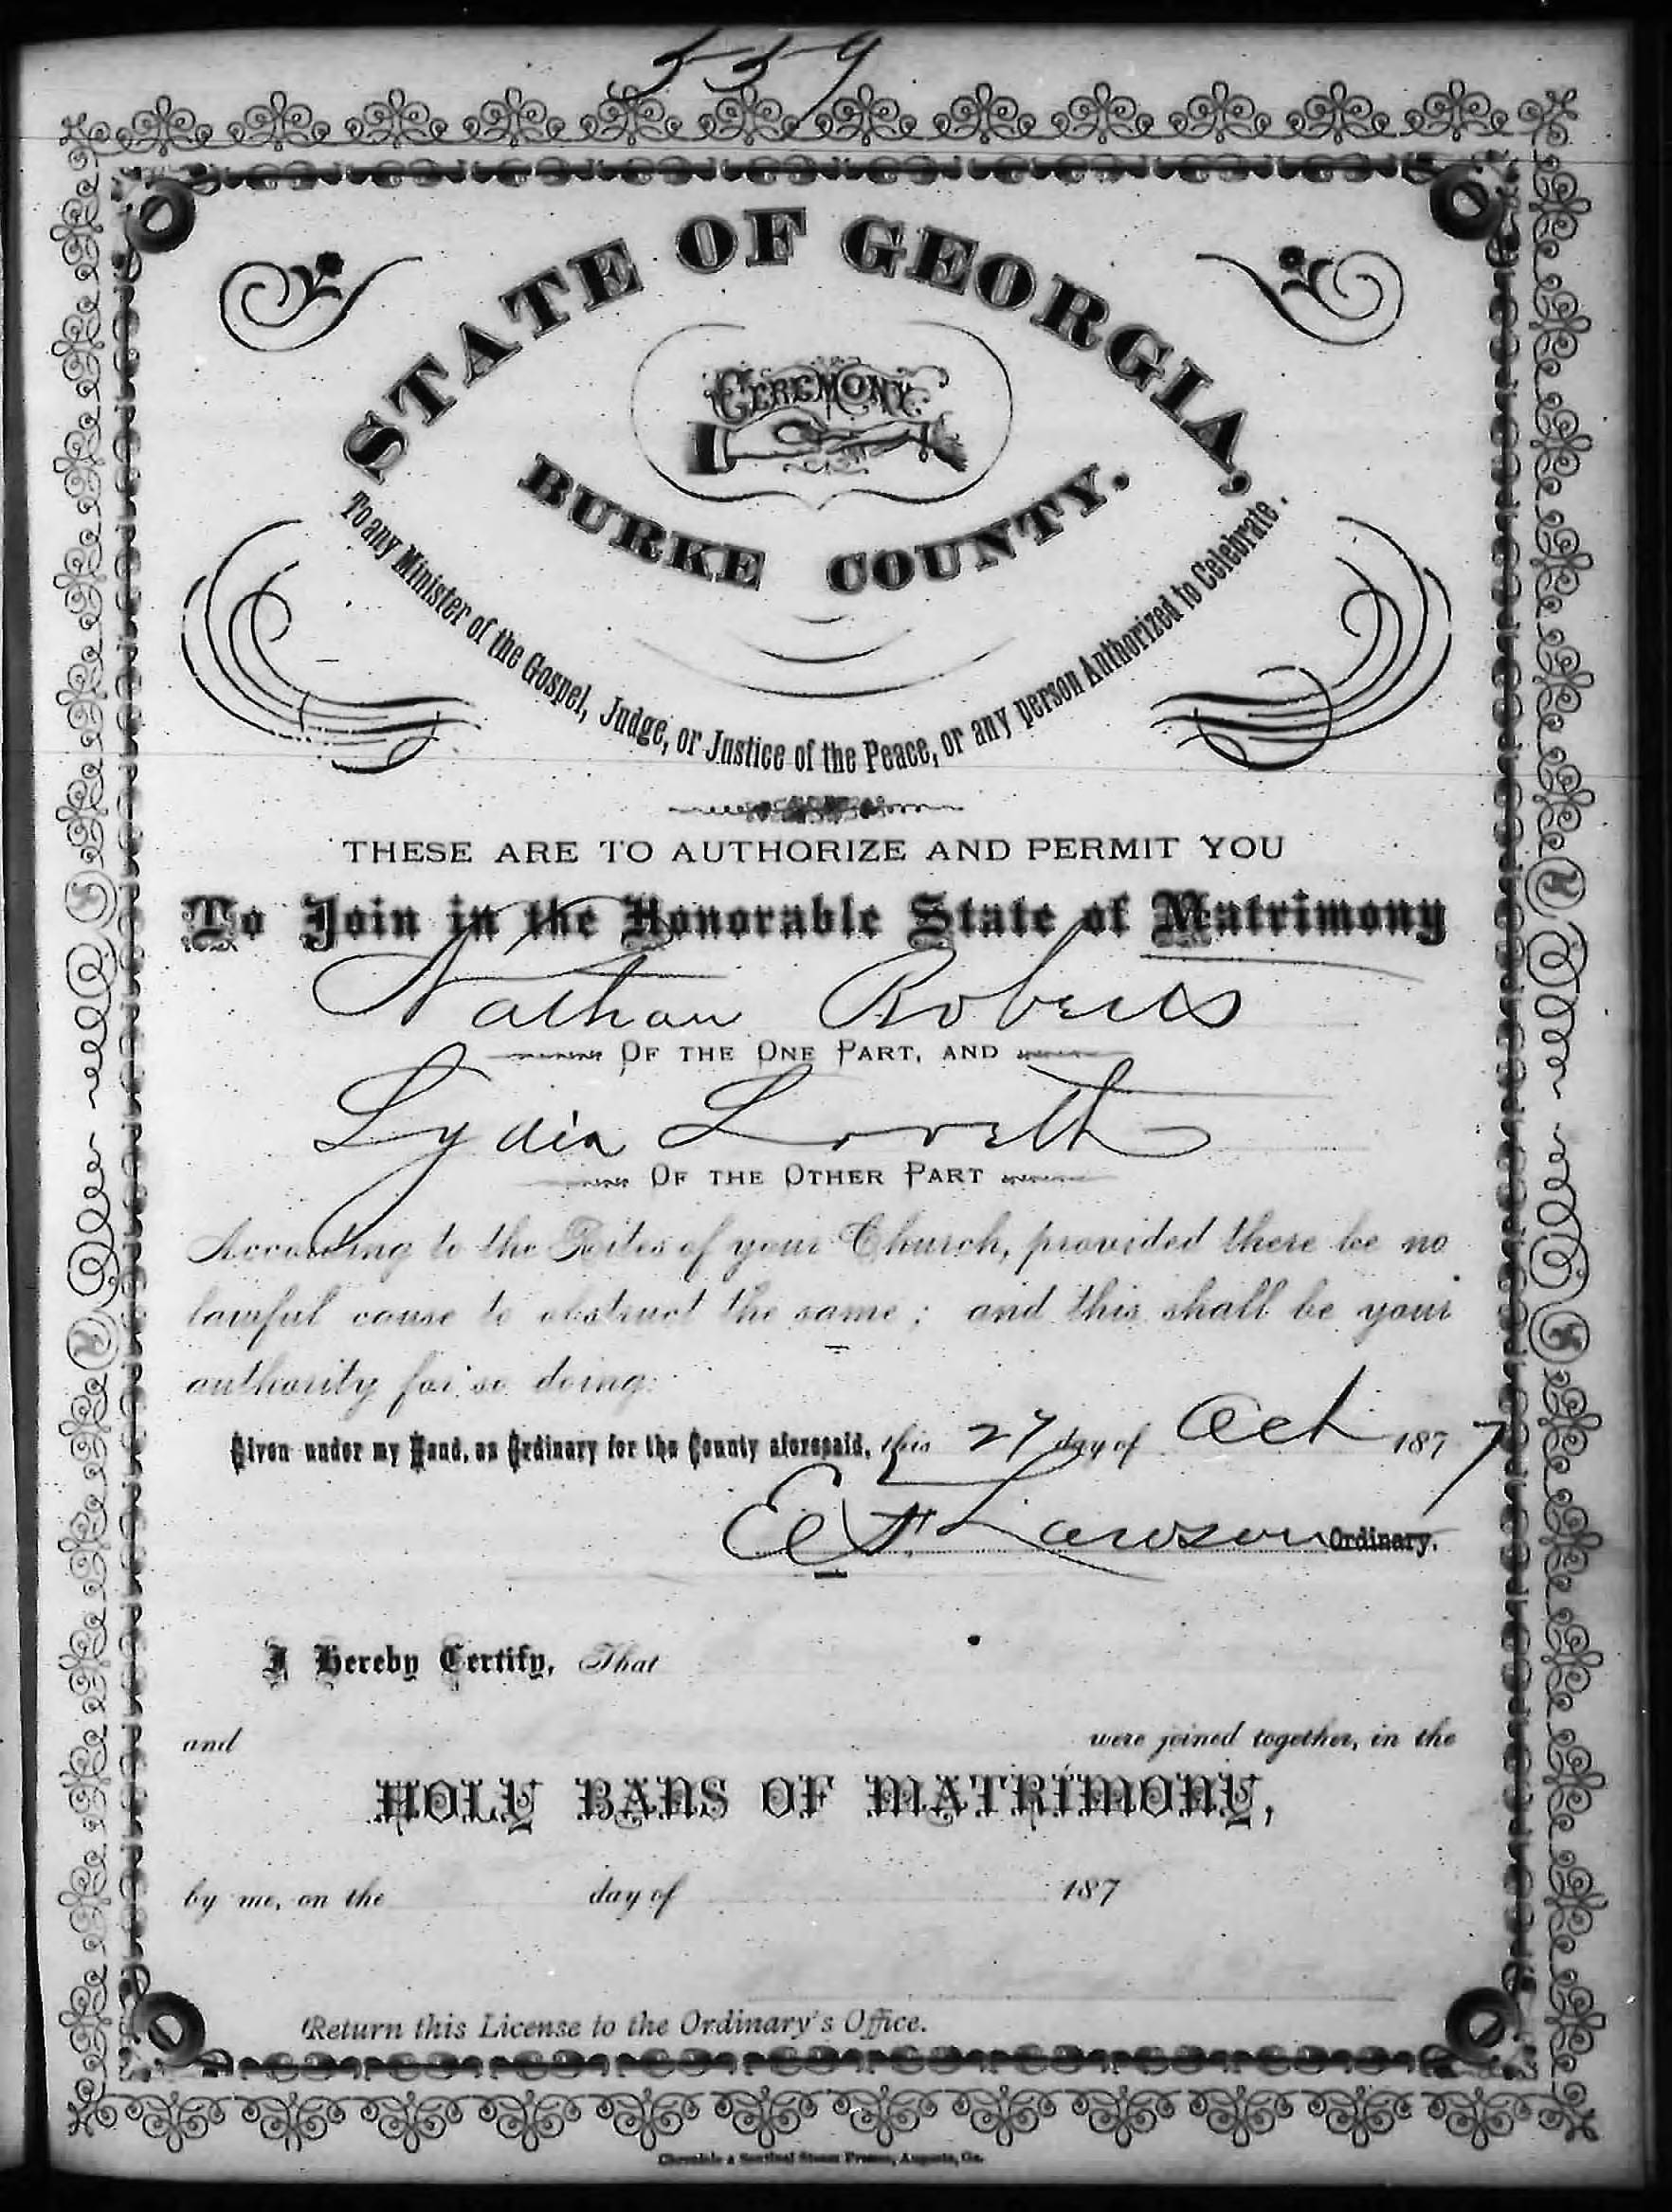 559
STATE OF GEORGIA,
CEREMONY
BURKE COUNTY.
To any Minister of the Gospel, Judge, or Justice of the Peace, or any person Authorized to Celebrate.
THESE ARE TO AUTHORIZE AND PERMIT YOU
To Join in the Honorable State of Matrimony
Nathan Roberts
OF THE ONE PART, AND
Lydia Lovett
OF THE OTHER PART
According to the Rites of your Church, provided there be no
lawful cause to obstruct the same; and this shall be your
authority for so doing.
Given under my Hand, as Ordinary for the County aforesaid, this 27 day of Oct 1877
Lawson Ordinary.
I Hereby Certify, That
and were joined together, in the
HOLY BANS OF MATRIMONY,
by me, on the day of 187
Return this License to the Ordinary's Office.
Chronicle & Sentinel Steam Presses, Augusta, Ga.